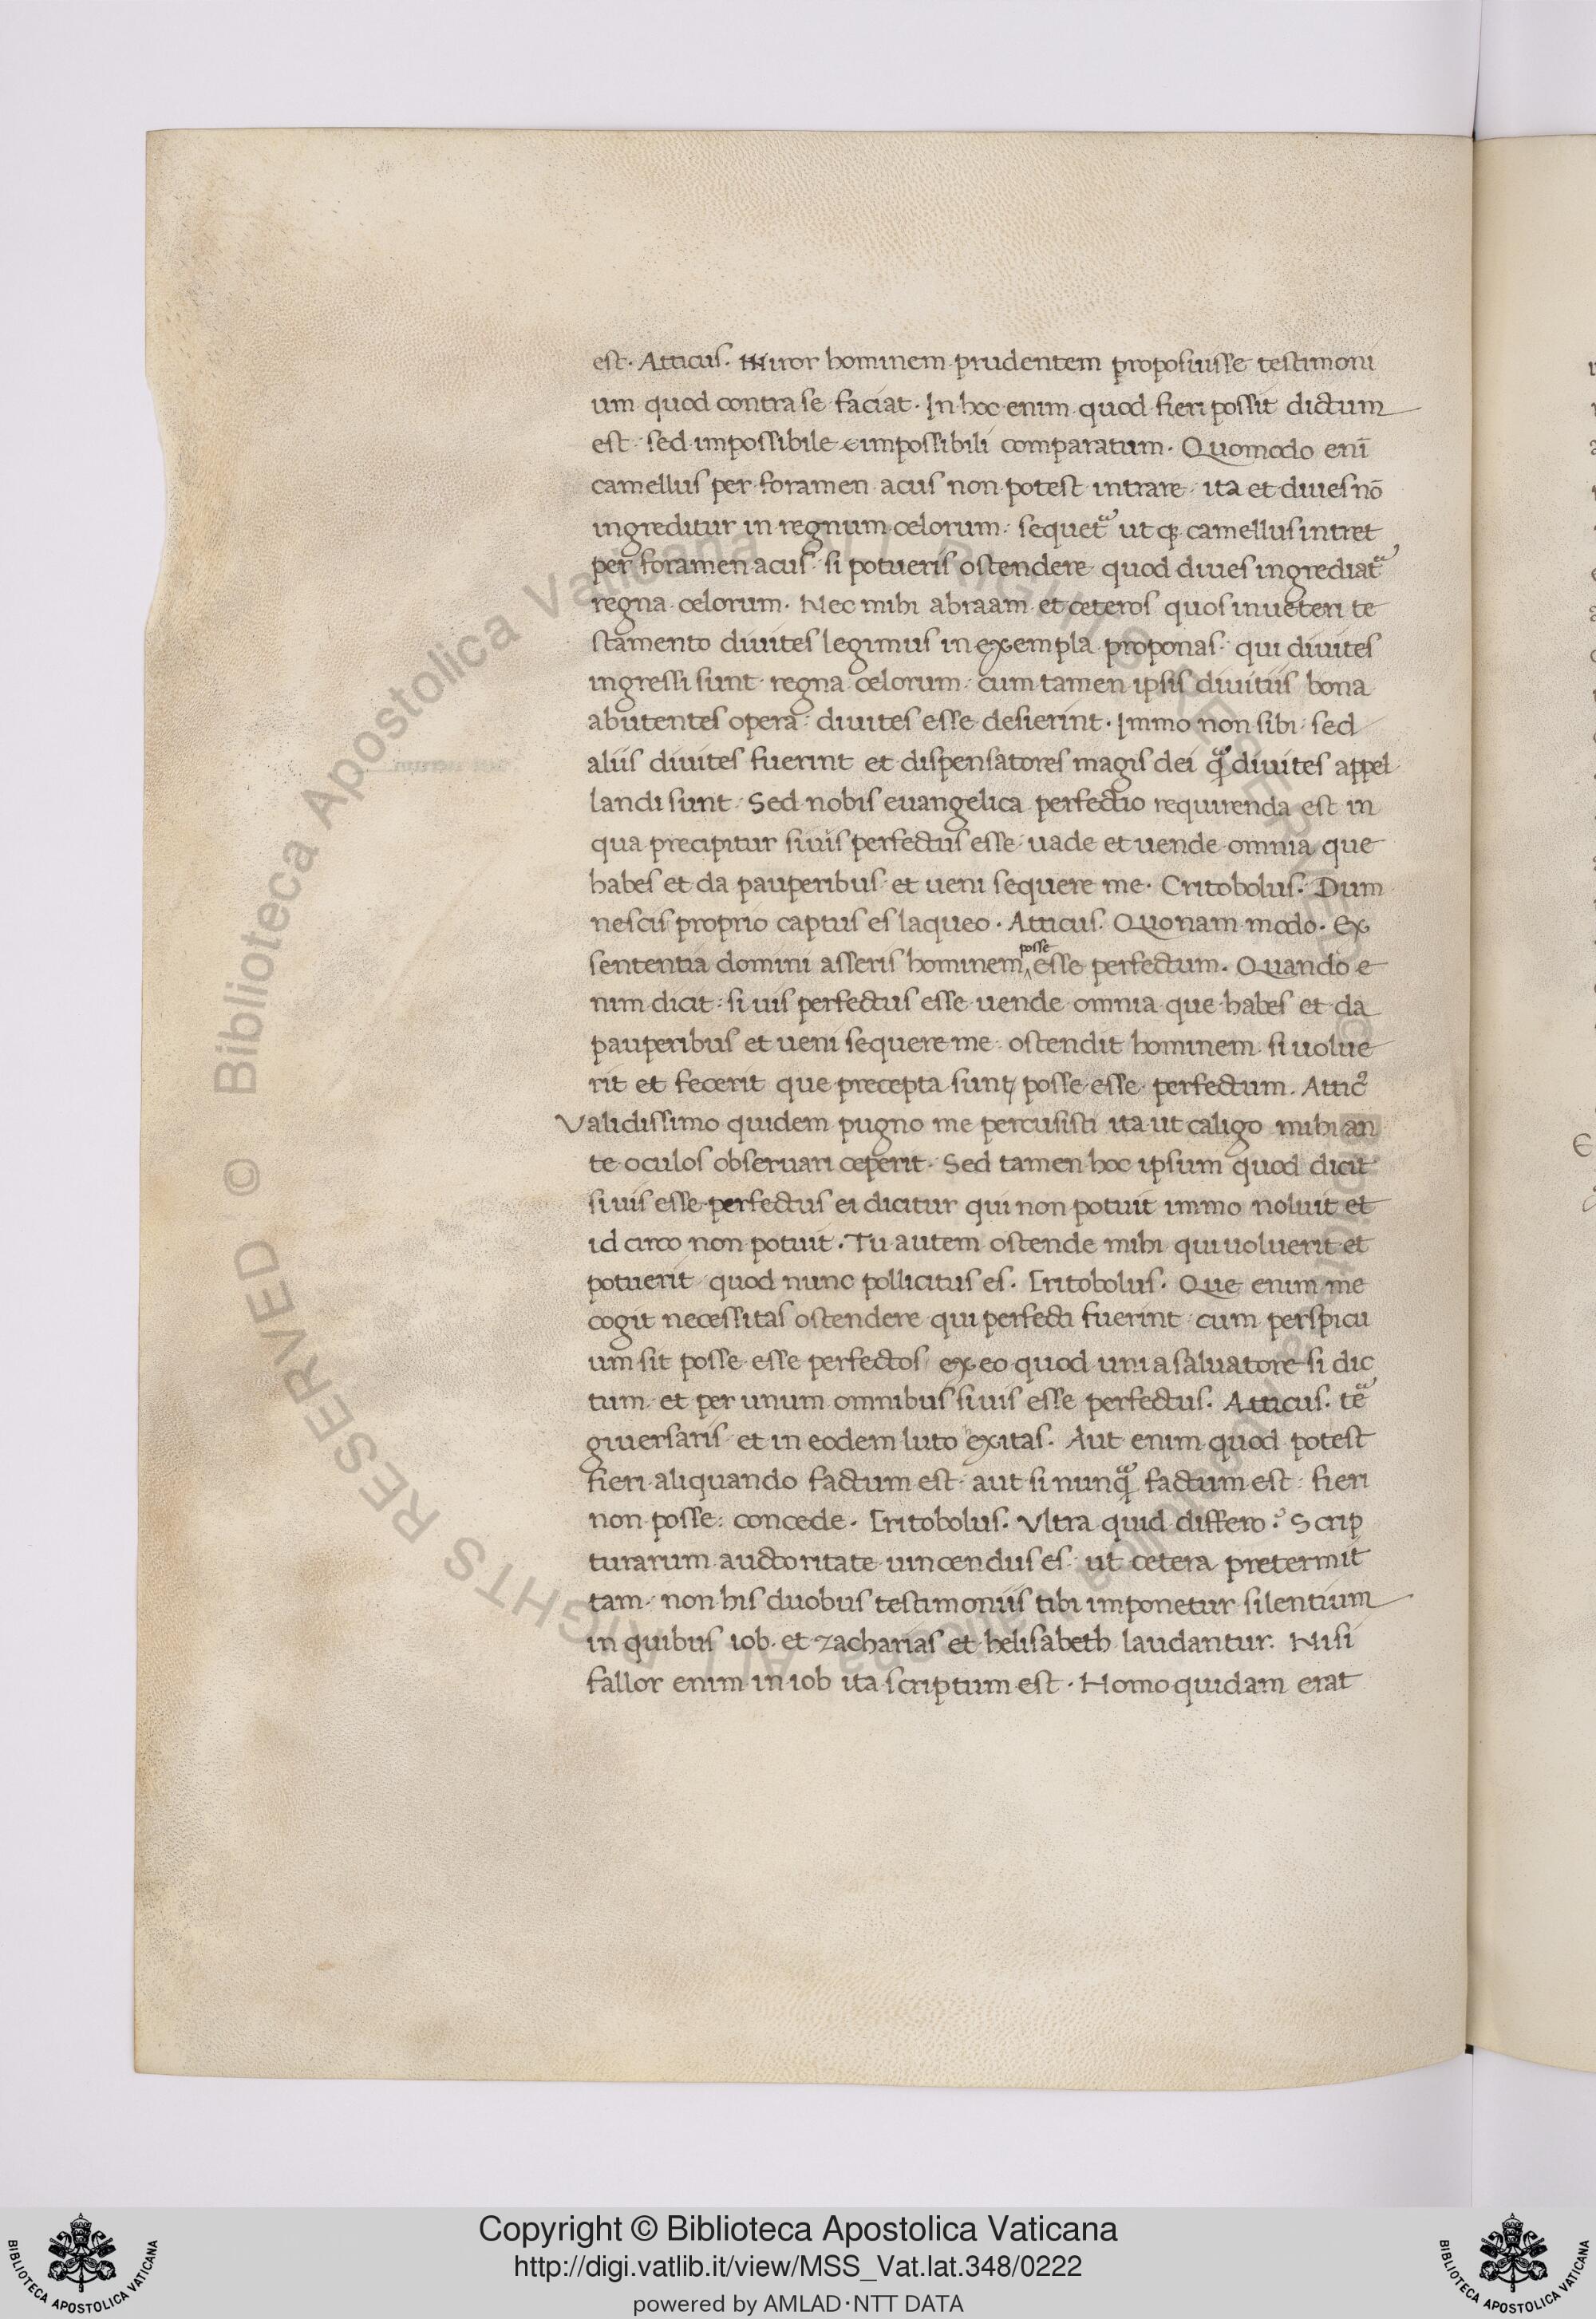 est. Atticus. Miror hominem prudentem proposiuisse testimoni
um quod contra se faciat. In hoc enim quod fieri possit dictum
est. sed impossibile impossibili comparatum. Quomodo enī
camellus per foramen acus non potest intrare. ita et diues nō
ingreditur in regnum celorum. sequetᷓ ut camellus intret
per foramen acus. si potueris ostendere quod diues ingrediatᷓ
regna celorum. Nec mihi abraam et ceteros quos in ueteri te
stamento diuites legimus in exempla proponas. qui diuites
ingressi sunt regna celorum. cum tamen ipsis diuitiis bona
abutentes opera. diuites esse desierint. Immo non sibi sed
aliis diuites fuerint et dispensatores magis dei qᷓ diuites appel
landi sunt. Sed nobis euangelica perfectio requirenda est in
qua precipitur si uis perfectus esse uade et uende omnia que
habes et da pauperibus et ueni sequere me. Critobolus. Dum
nescis proprio captus es laqueo. Atticus. Quonam modo. Ex
posse
sententia domini asseris hominem esse perfectum. Quando e
nim dicit. si uis perfectus esse uende omnia que habes et da
pauperibus et ueni sequere me ostendit hominem si uolue
rit et fecerit que precepta sunt posse esse perfectum. Atticꝰ
Validissimo quidem pugno me percusisti ita ut caligo mihi an
te oculos obseruari ceperit. Sed tamen hoc ipsum quod dicit
si uis esse perfectus ei dicitur qui non potuit immo noluit et
id circo non potuit. Tu autem ostende mihi qui uoluerit et
potuerit quod nunc pollicitus es. Critobolus. Que enim me
cogit necessitas ostendere qui perfecti fuerint cum perspicu
um sit posse esse perfectos ex eo quod uni a saluatore si dic
tum et per unum omnibus si uis esse perfectus. Atticus. teᷓ
giuersaris et in eodem luto exitas. Aut enim quod potest
fieri aliquando factum est. aut si nunqᷓ factum est. fieri
non posse. concede. Critobolus. Vltra quid differo? Scrip
turarum auctoritate uincendus es. ut cetera pretermit
tam. non his duobus testimoniis tibi imponetur silentium
in quibus iob. et zacharias et helisabeth laudantur. Nisi
fallor enim in iob ita scriptum est. Homo quidam erat
© Biblioteca Apostolica Vaticana ALL RIGHTS RESERVED
© Biblioteca Apostolica Vaticana ALL RIGHTS RESERVED
Copyright © Biblioteca Apostolica Vaticana
http://digi.vatlib.it/view/MSS_Vat.lat.348/0222
powered by AMLAD·NTT DATA
BIBLIOTECA APOSTOLICA VATICANA
BIBLIOTECA APOSTOLICA VATICANA